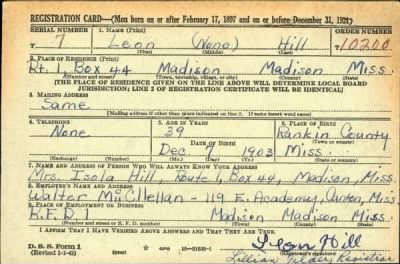 REGISTRATION CARD—(Men born on or after February 17, 1897 and on or before December 31, 1921)
SERIAL NUMBER 1. NAME (Print) ORDER NUMBER
T 7 Leon (None) Hill 10200
(First) (Middle) (Last)
2. PLACE OF RESIDENCE (Print)
Rt. 1, Box 44 Madison Madison Miss.
(Number and street) (Town, township, village, or city) (County) (State)
[THE PLACE OF RESIDENCE GIVEN ON THE LINE ABOVE WILL DETERMINE LOCAL BOARD
JURISDICTION; LINE 2 OF REGISTRATION CERTIFICATE WILL BE IDENTICAL]
3. MAILING ADDRESS
Same
[Mailing address if other than place indicated on line 2. If same insert word same]
4. TELEPHONE 5. AGE IN YEARS 6. PLACE OF BIRTH
None 39 Rankin County
DATE OF BIRTH (Town or county)
Dec 7 1903 Miss.
(Exchange) (Number) (Mo.) (Day) (Yr.) (State or country)
7. NAME AND ADDRESS OF PERSON WHO WILL ALWAYS KNOW YOUR ADDRESS
Mrs. Isola Hill, Route 1, Box 44, Madison, Miss.
8. EMPLOYER'S NAME AND ADDRESS
Walter McClellan - 119 E. Academy, Canton, Miss.
9. PLACE OF EMPLOYMENT OR BUSINESS
R.F.D. 1 Madison Madison Miss.
(Number and street or R. F. D. number) (Town) (County) (State)
I AFFIRM THAT I HAVE VERIFIED ABOVE ANSWERS AND THAT THEY ARE TRUE.
D. S. S. Form 1 Leon Hill
(Revised 1-1-42) (over) GPO 16—21630-1 (Registrant's signature)
Lillian Registrar